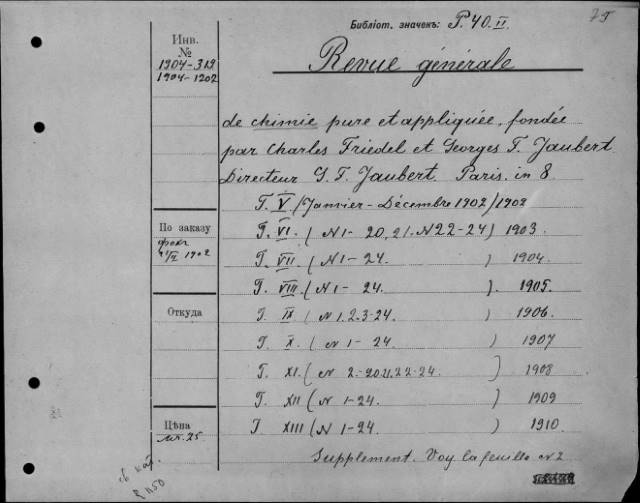 Библіот. значекъ: P. 40. II.
75
Инв.
№
1904-319
1904-1202
Revue générale
de chimie pure et appliquée, fondée
par Charles Friedel et Georges F. Jaubert
Directeur G. F. Jaubert. Paris. in 8
T. V (Janvier - Décembre 1902) 1902
По заказу
1902
T. VI. (N 1- 20, 21. N 22-24) 1903.
T. VII. (N 1- 24. ) 1904.
T. VIII. (N 1- 24. ). 1905.
Откуда
T. IX (N 1.2.3-24. ) 1906.
T. X. (N 1-24. ) 1907
T. XI. (N 2.-20.21.22-24. ) 1908
T. XII (N 1-24. ) 1909
Цѣна
25
T. XIII (N 1-24. ) 1910.
Supplement. Voy la feuille N 2